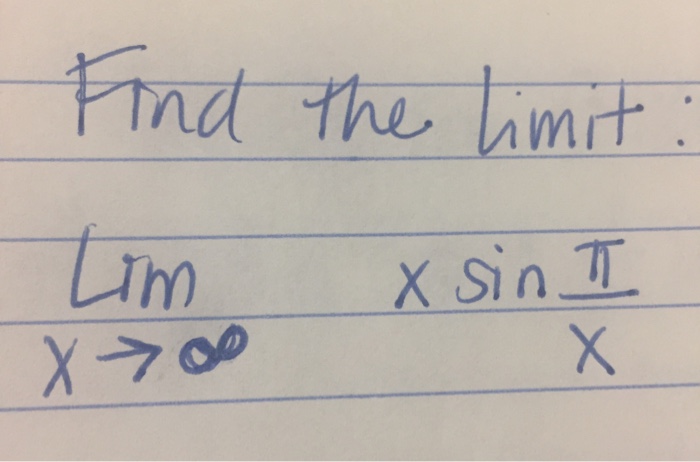 Find the limit:
Lim x sin π
x → ∞ x